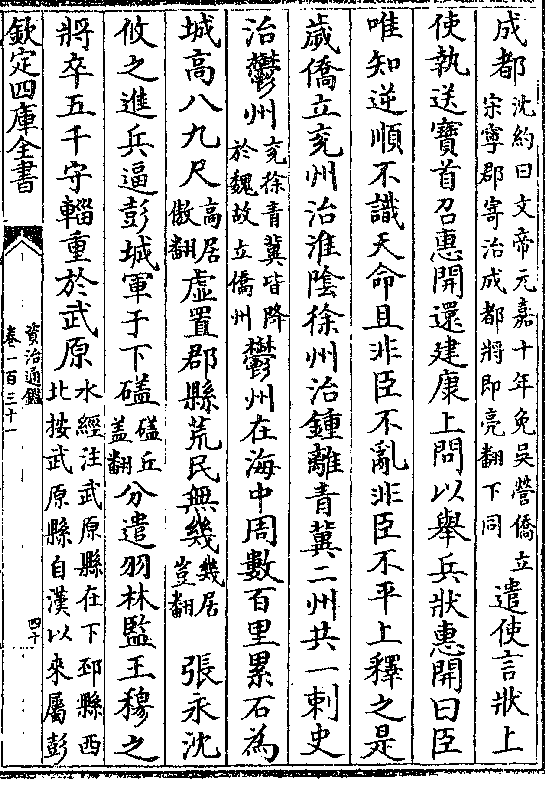 成都沈約曰文帝元嘉十年免吳營僑立宋寧郡寄治成都將即亮翻下同遣使言狀上
使執送寶首召惠開還建康上問以舉兵狀惠開曰臣
唯知逆順不識天命且非臣不亂非臣不平上釋之是
歲僑立兖州治淮陰徐州治鍾離青冀二州共一刺史
治鬱州兖徐青冀皆降於魏故立僑州鬱州在海中周數百里累石為
城高八九尺高居傲翻虛置郡縣荒民無幾幾居豈翻 張永沈
攸之進兵逼彭城軍于下磕磕丘盖翻分遣羽林監王穆之
將卒五千守輜重於武原水經注武原縣在下邳縣西北按武原縣自漢以來屬彭
欽定四庫全書
資治通鑑
卷一百三十一
四十